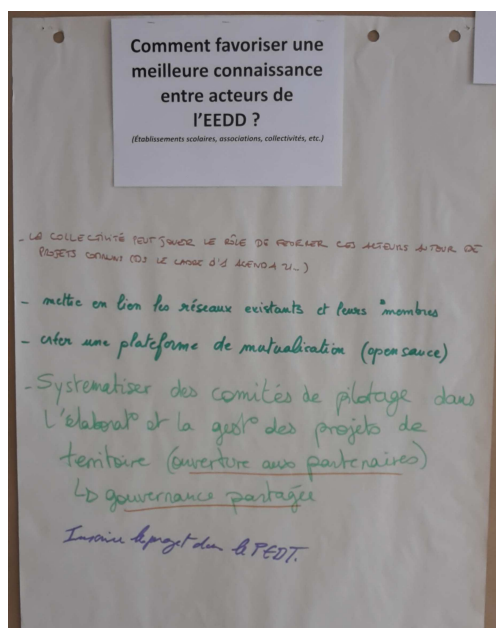 Comment favoriser une
meilleure connaissance
entre acteurs de
l'EEDD ?
(Établissements scolaires, associations, collectivités, etc.)
- LA COLLECTIVITÉ PEUT JOUER LE RÔLE DE FEDERER CES ACTEURS AUTOUR DE
PROJETS COMMUNS (DS LE CADRE D'1 AGENDA 21...)
- mettre en lien les réseaux existants et leurs membres
- créer une plateforme de mutualisation (open source)
- Systematiser des comités de pilotage dans
l'élabora° et la gest° des projets de
territoire (ouverture aux partenaires)
↳ gouvernance partagée
Inscrire le projet dans le PEDT.